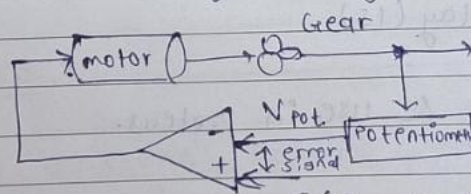 Gear
motor
Vpot.
Potentiomet
-
error
signal
+